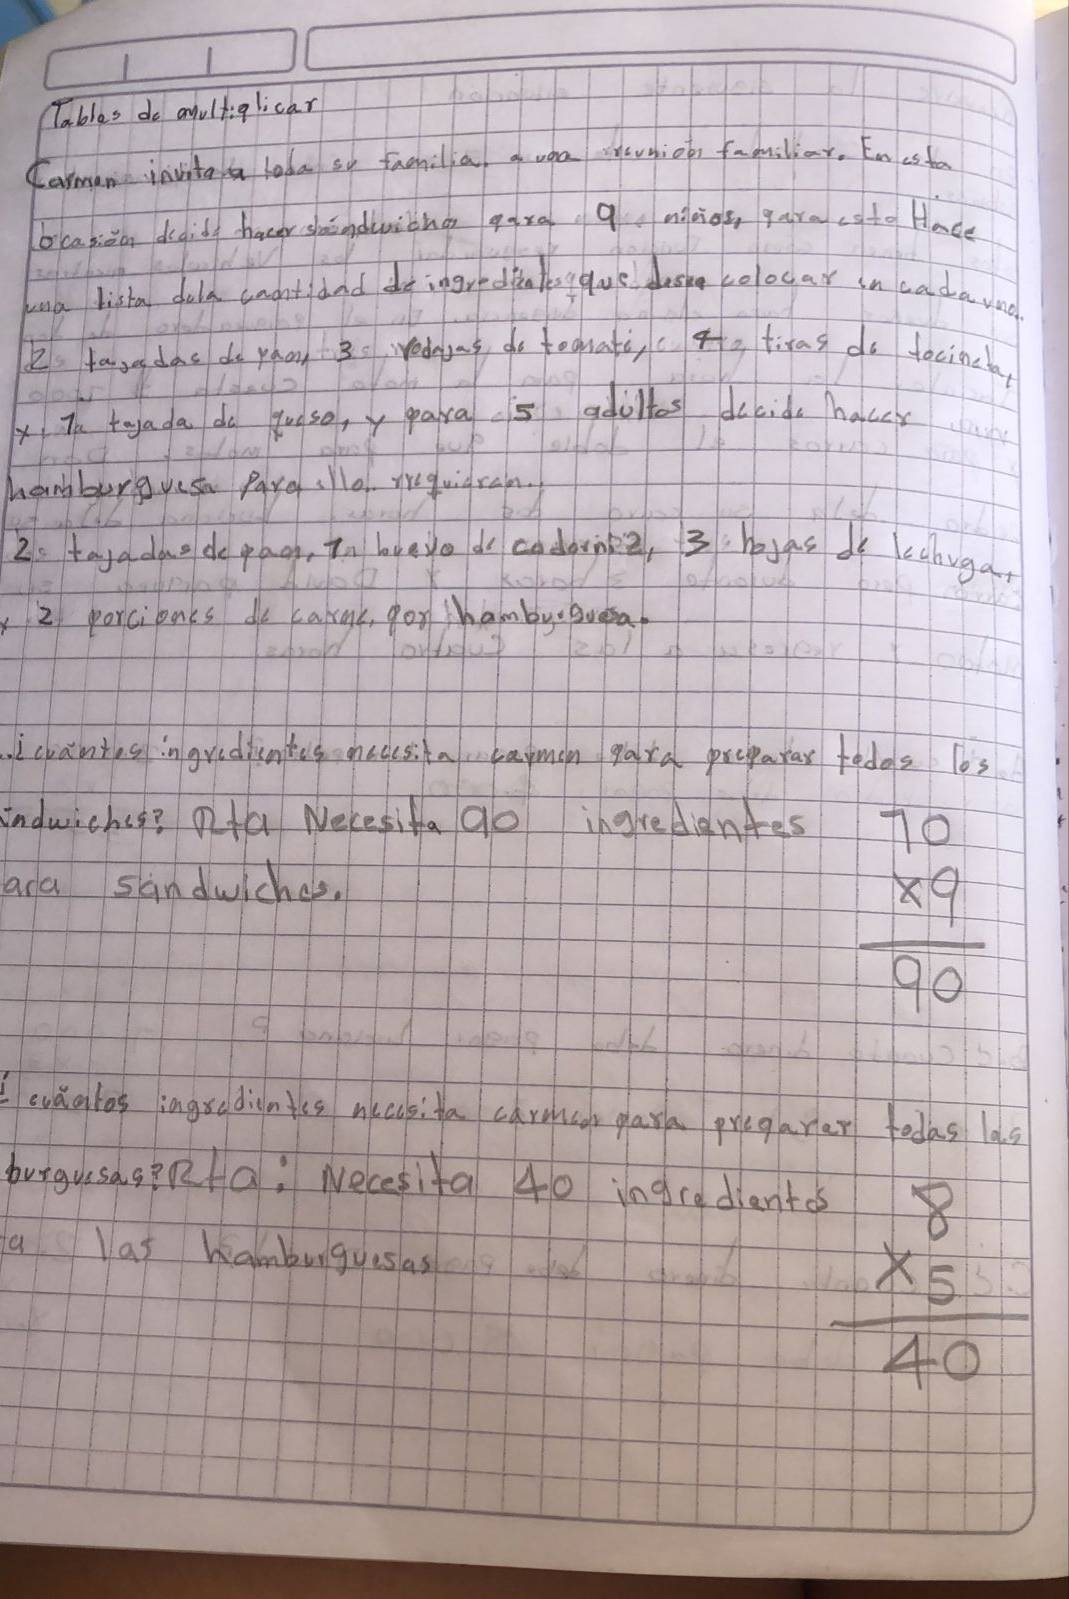 Tablas de multiplicar
Carmen invita a toda su familia a una reunión familiar. En esta
ocasión decide hacer sándwiches para 9 niños, para esto Hace
una lista dela cantidad de ingredientes que desea colocar en cada uno.
2 tajadas de pan, 3 rodajas de tomate, 4 tiras de tocineta,
y 1 tajada de queso, y para 5 adultos decide hacer
hamburguesa Para ello requieren.
2 tajadas de pan, 1 huevo de codorniz, 3 hojas de lechuga,
y 2 porciones de carne, por hamburguesa.
¿cuántos ingredientes necesita carmen para preparar todos los
indwiches? Rta Necesita 90 ingredientes
ara sándwiches.
10
x9
90
¿cuántos ingredientes necesita carmen para preparar todas las
burguesas? Rta: Necesita 40 ingredientes
a las hamburguesas
8
x5
40